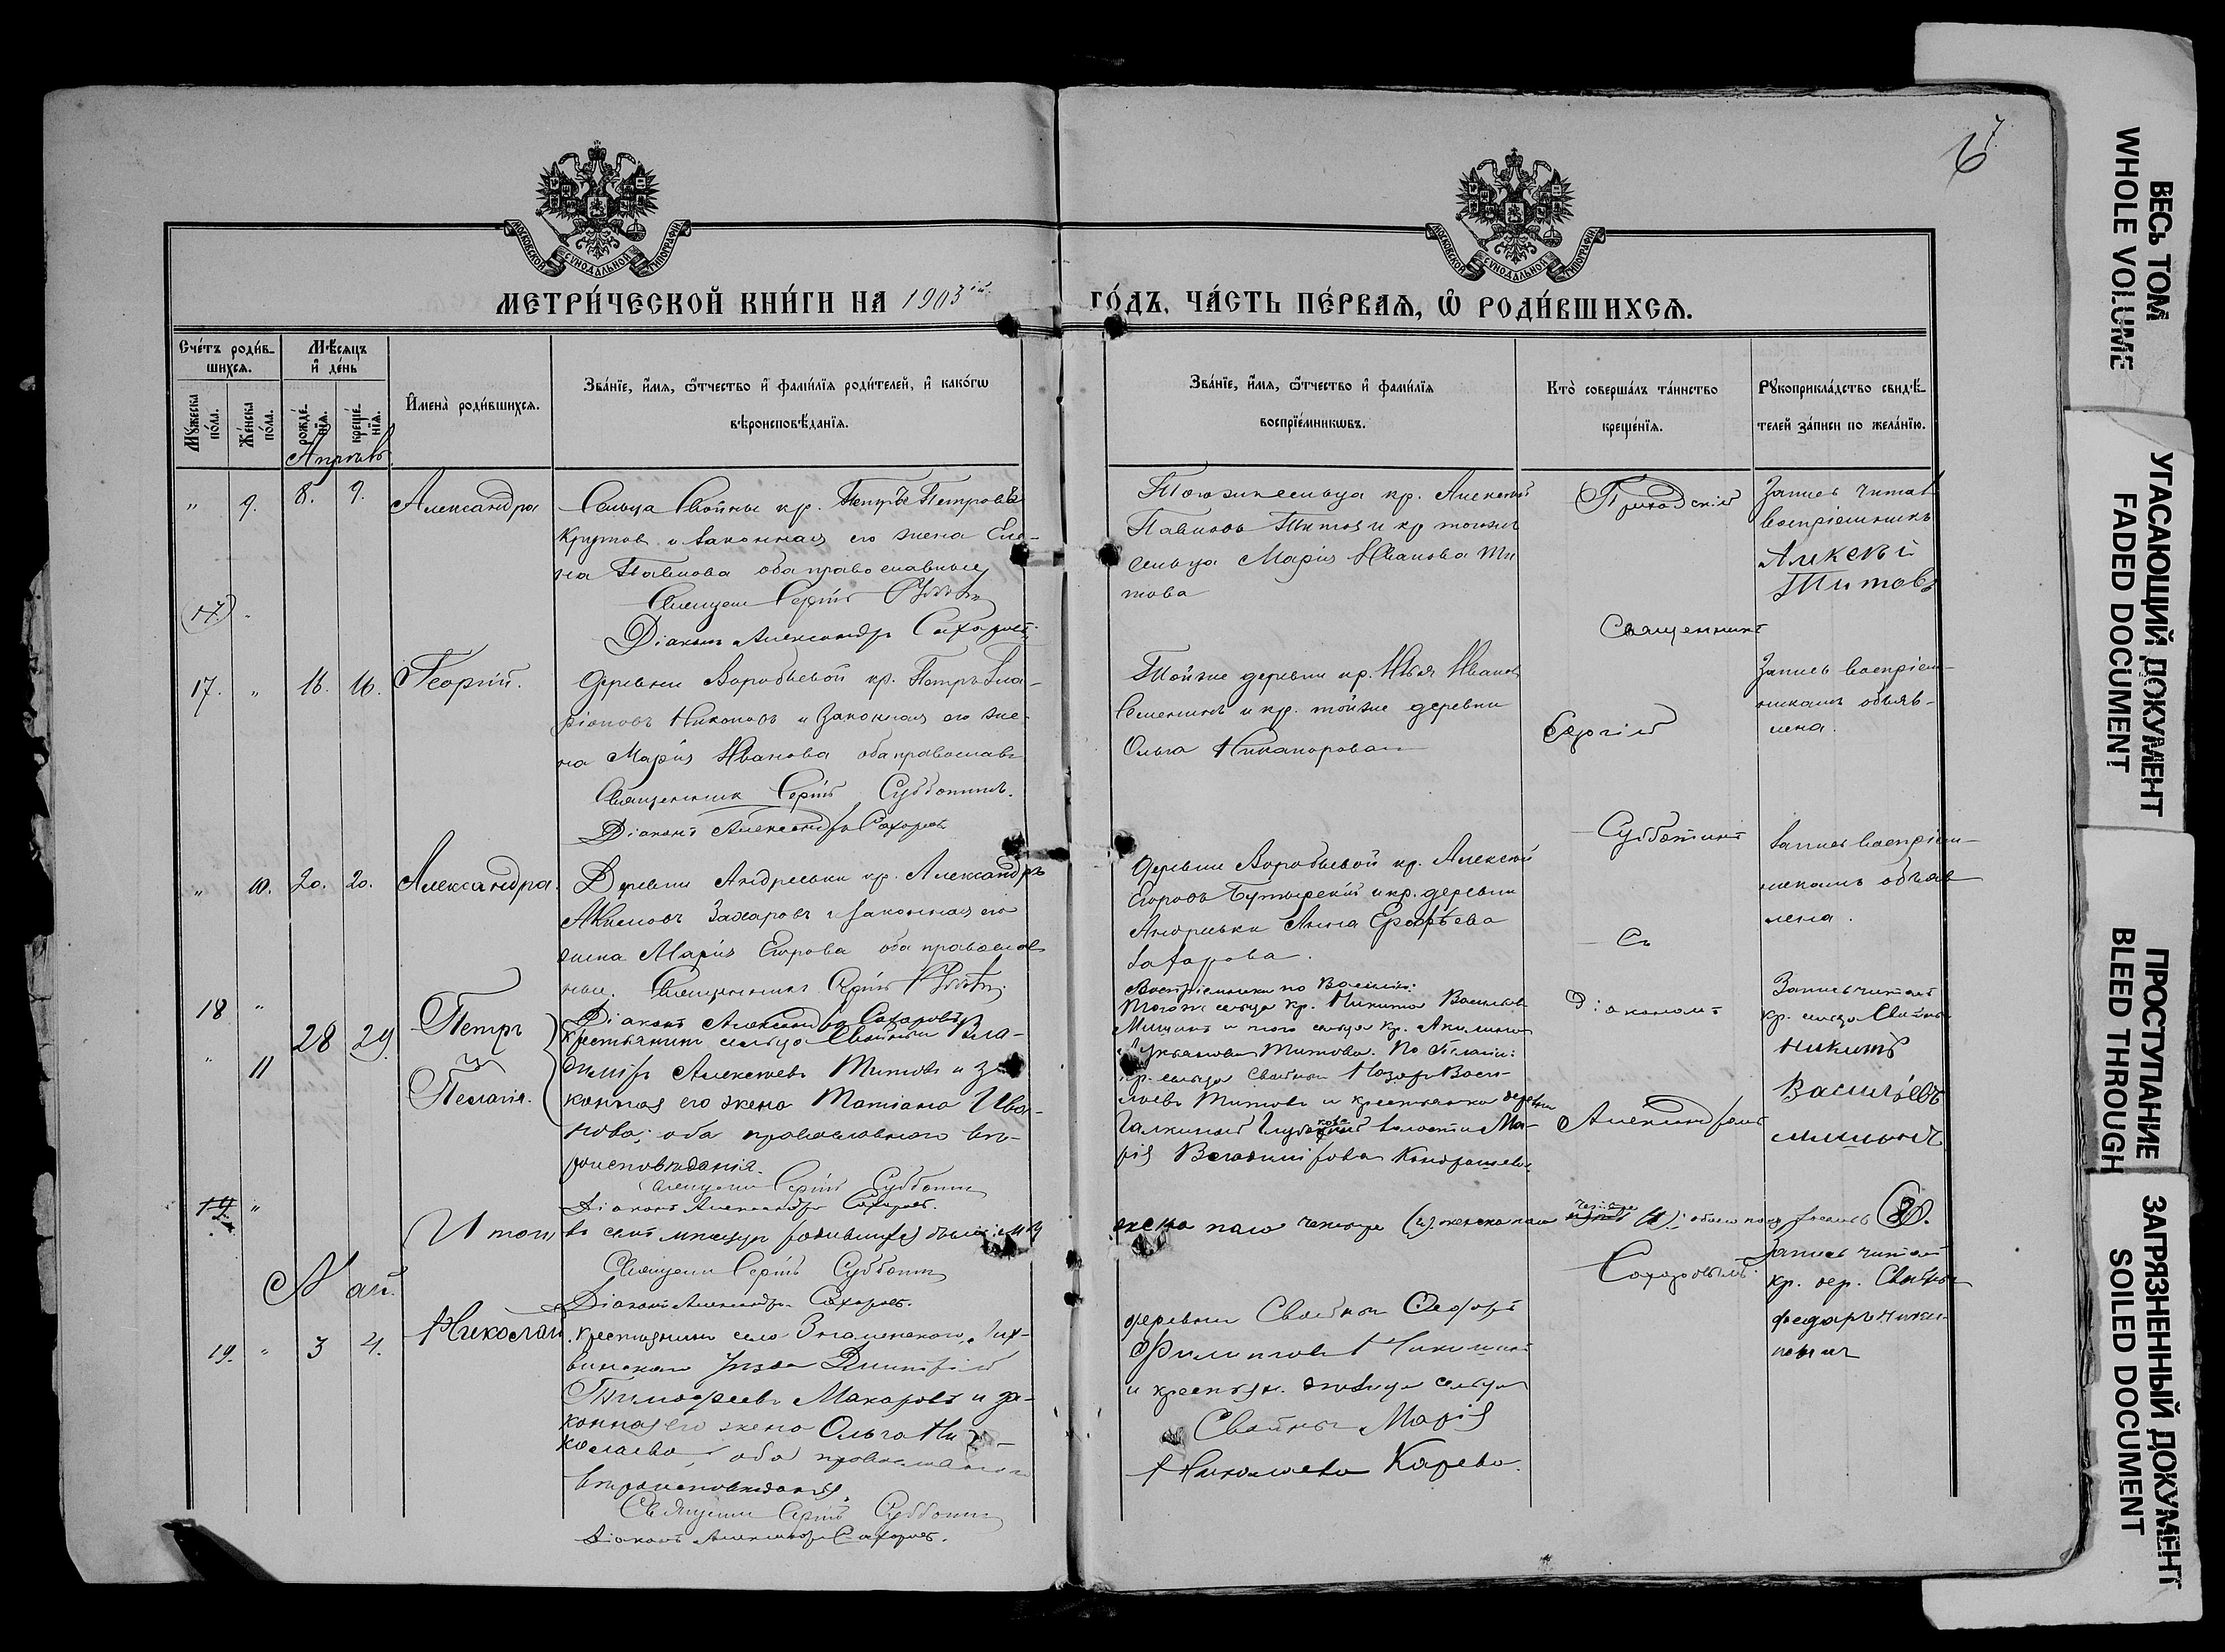 7.
6
МОСКОВСКОЙ СУНОДАЛЬНОЙ ТИПОГРАФІИ
МОСКОВСКОЙ СУНОДАЛЬНОЙ ТИПОГРАФІИ
МЕТРИ́ЧЕСКОЙ КНИ́ГИ НА 1903
ГО́ДЪ, ЧА́СТЬ ПЕ́РВАѦ, Ѽ РОДИ́ВШИХСѦ.
Сче́тъ роди́в-
шихсѧ.
Мꙋ́жеска
по́ла.
Же́нска
по́ла.
Мѣ́сѧцъ
и҆ де́нь
рожде́-
нїѧ.
креще́-
нїѧ.
И҆мена̀ роди́вшихсѧ.
Зва́нїе, и҆́мѧ, ѻ҆́тчество и҆ фами́лїѧ роди́телей, и҆ како́гѡ
вѣроисповѣ́данїѧ.
Зва́нїе, и҆́мѧ, ѻ҆́тчество и҆ фами́лїѧ
воспрїе́мникѡвъ.
Кто̀ соверша́лъ та́инство
креще́нїѧ.
Рꙋкоприкла́дство свидѣ́-
телей за́писи по жела́нїю.
Апрѣль
" 9. 8. 9. Александра
Сельца Свойны кр. Петръ Петровъ
Крутов и законная его жена Еле-
на Павлова оба православные
Священ Сергій
Діаконъ Александръ Сахаровъ
Тогоже сельца кр. Алексѣй
Павловъ Титов и кр тогоже
сельца Марія Иванова Ти
това
Приходскій
Запись читалъ
воспріемникъ
Алексѣй
Титовъ
(17) "
Священникъ
17. " 16. 16. Георгій.
Деревни Воробьевой кр. Петръ Ила-
ріоновъ Никоновъ и законная его же-
на Марія Иванова оба православн
Священникъ Сергій Субботинъ.
Діаконъ Александръ Сахаровъ
Тойже деревни кр. Илья Иванов
и кр. тойже деревни
Ольга Никанорова
Сергій
Запись воспріем-
никамъ объяв-
лена.
Субботинъ
" 10. 20. 20. Александра.
Деревни Андреевки кр. Александръ
Акимовъ Захаровъ и законная его
жена Марія Егорова оба православ
ные. Священникъ Сергій
Діаконъ Александръ Сахаровъ
Деревни Воробьевой кр. Алексѣй
Егоровъ Бутырскій и кр. деревни
Андреевки Анна Ерофѣева
Захарова.
Съ
Запись воспріем-
никамъ объяв
лена.
18 "
" 11
28 29
Петръ
и
Пелагія.
Крестьянинъ сельца Свойны Вла-
димiръ Алексѣевъ Титовъ и за-
конная его жена Татіана Ива-
нова; оба православнаго вѣ-
роисповѣданія.
Священ Сергій Субботин
Діаконъ Александръ Сахаровъ.
Воспріемники по
Тогоже сельца кр. Никита Васильев
и того сельца кр. Акилина
Титова. По Пелагіи:
кр. сельца Свойны Назаръ Васи-
льевъ Титовъ и крестьянка деревни
волости Ма-
рія Владимірова Кондрашева.
Діакономъ
Александромъ
Запись читалъ
кр. сельца Свойны
Никита
Васильевъ
19 "
Итого въ семъ мѣсяцѣ родившихся было:
жска пола четыре (4) женска пола четыре (4); обоего пола восемь (8).
Священ Сергій Субботин
Діаконъ Александръ Сахаровъ.
Сахаровымъ.
Май.
19. " 3 4. Николай
крестьянинъ села Знаменскаго, Лих-
винскаго уѣзда Дмитрій
Тимофеевъ Макаровъ и за-
конная его жена Ольга Ни-
колаева, оба православнаго
вѣроисповѣданія.
Священ Сергій Субботин
Діаконъ Александръ Сахаровъ.
деревни Свойны Ѳеодоръ
Филипповъ
и крестьян. дѣвица сельца
Свойны Марія
Николаева Карева.
Запись читалъ
кр. дер. Свойны
Федоръ
ВЕСЬ ТОМ
WHOLE VOLUME
УГАСАЮЩИЙ ДОКУМЕНТ
FADED DOCUMENT
ПРОСТУПАНИЕ
BLEED THROUGH
ЗАГРЯЗНЕННЫЙ ДОКУМЕНТ
SOILED DOCUMENT